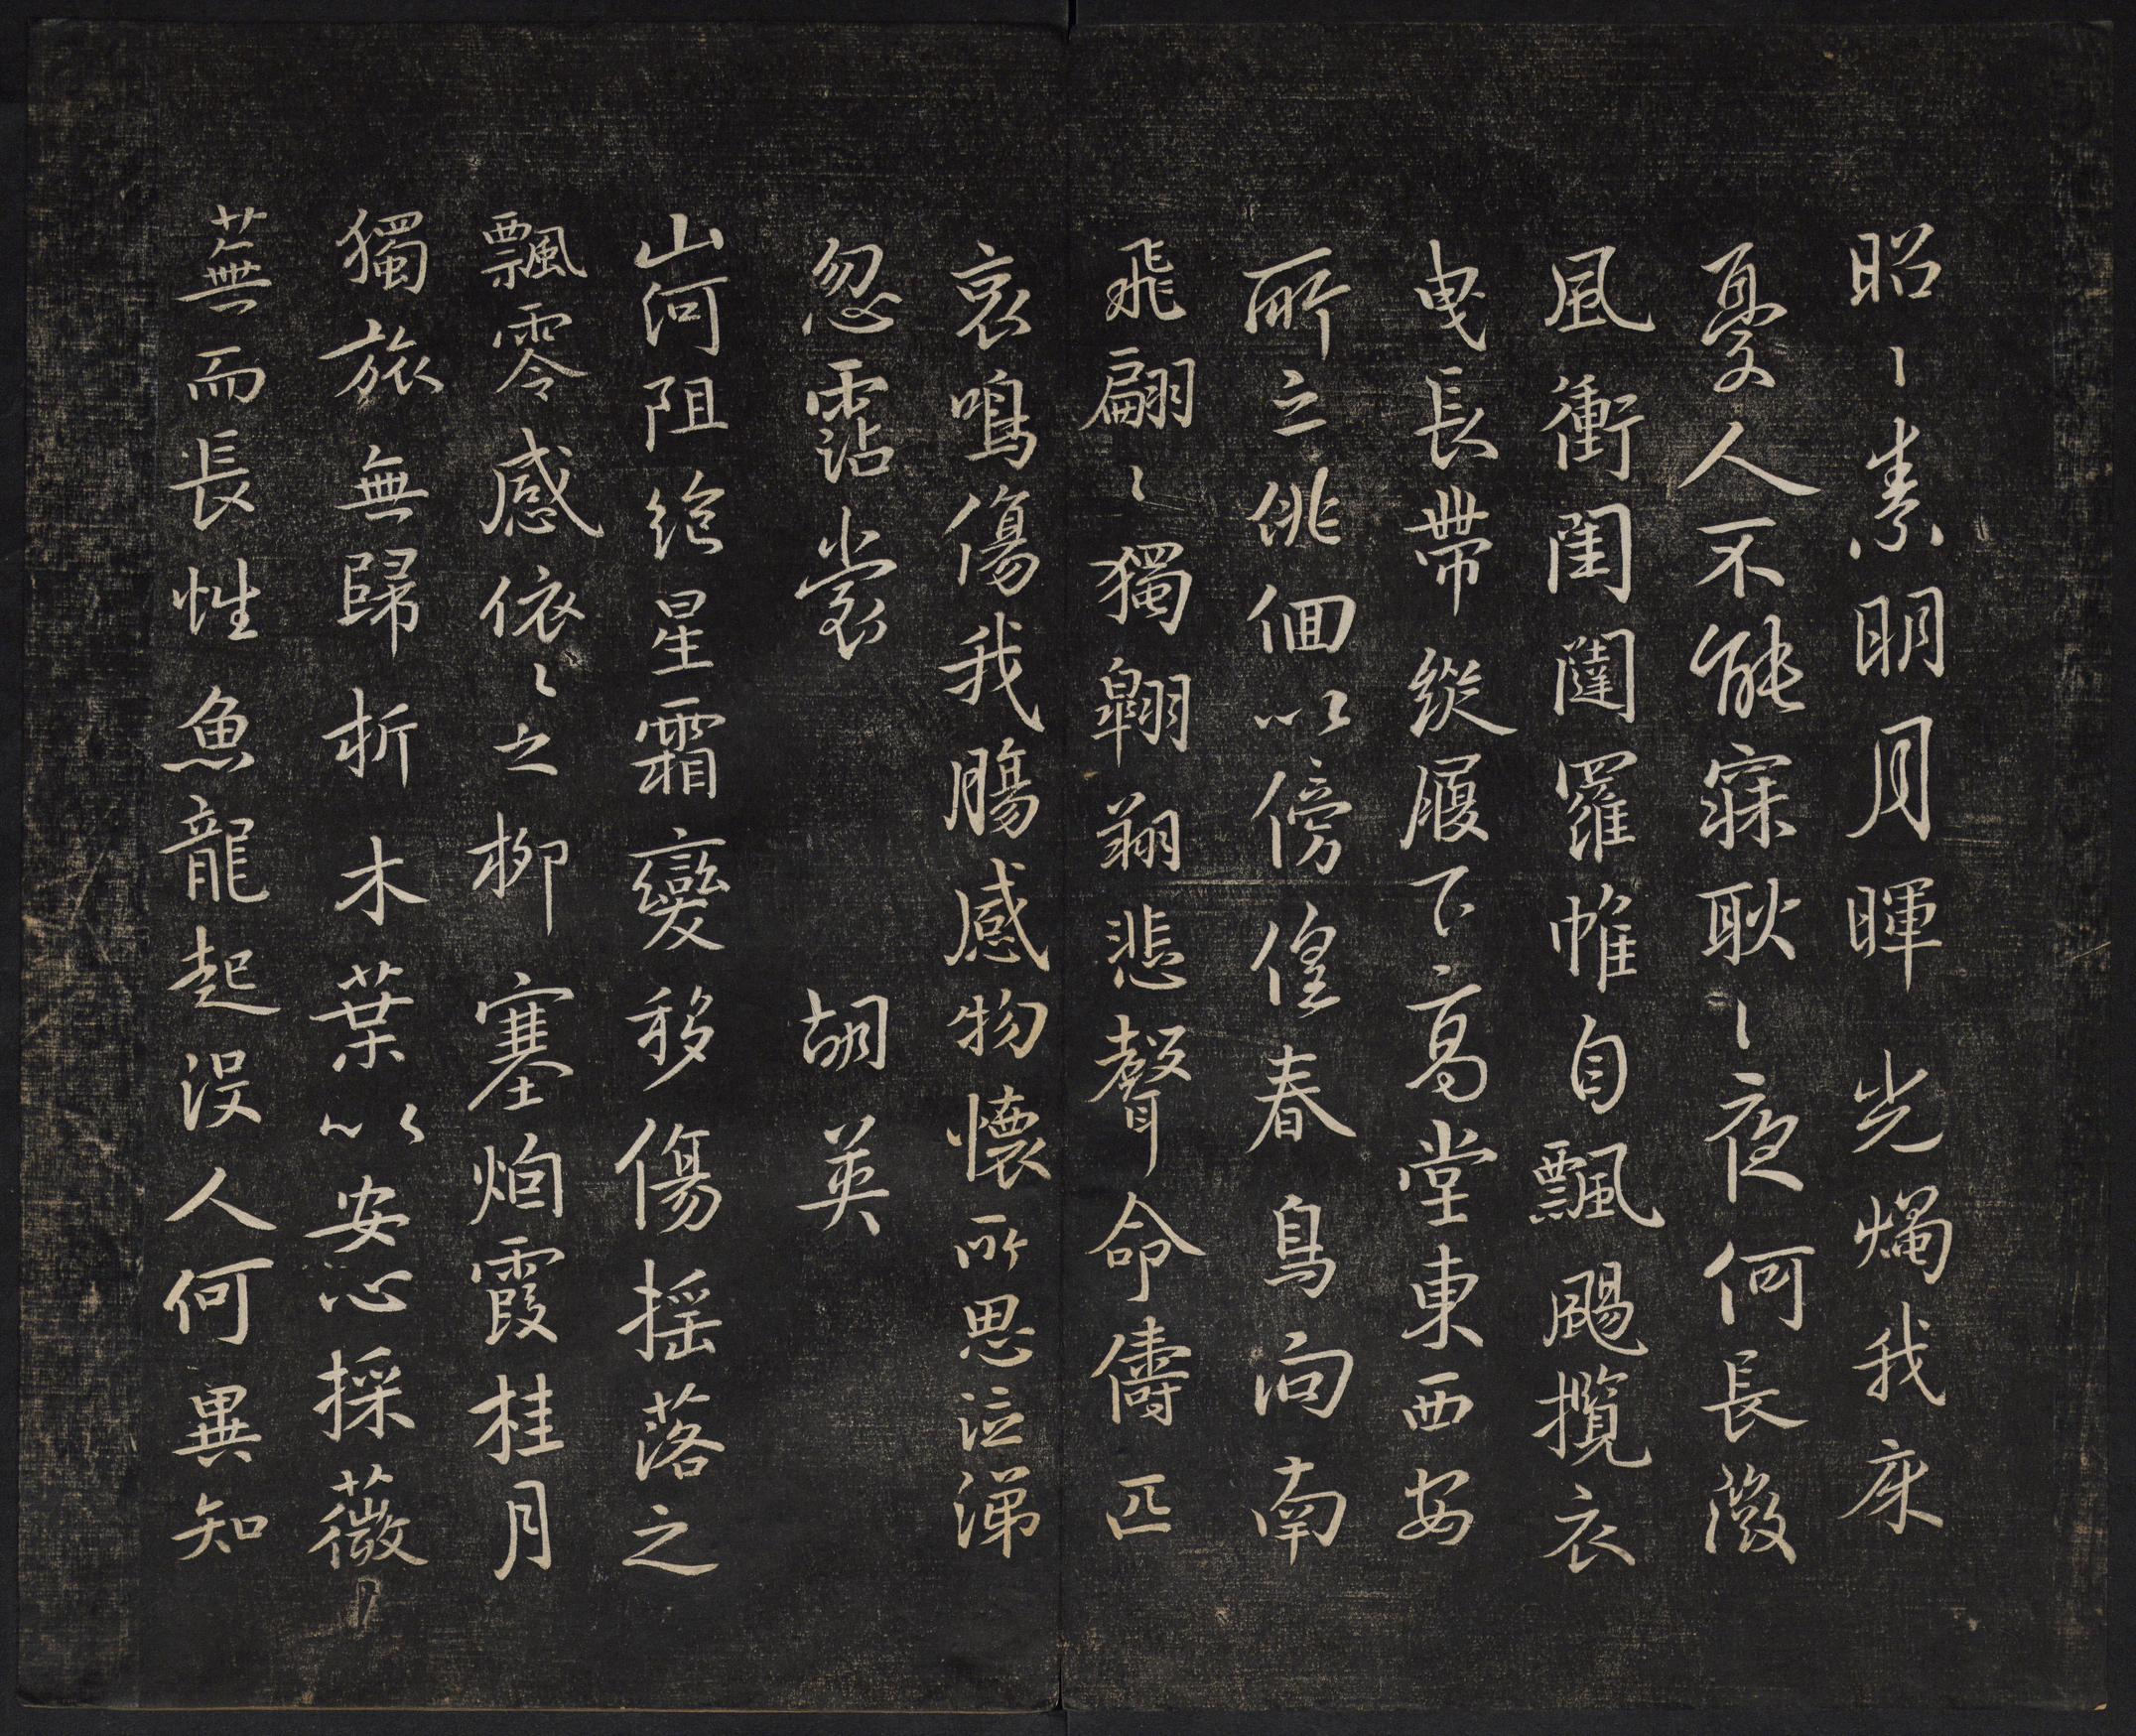 昭〻素明月暉光燭我床
憂人不能寐耿〻夜何長微
風衝閨闥羅帷自飄颺攬衣
曳長帶縱履下高堂東西安
所之徘徊以傍偟春鳥向南
飛翩〻獨翱翔悲聲命儔匹
哀鳴傷我腸感物懷所思泣涕
忽霑裳 胡英
山河阻絕星霜變移傷搖落之
飄零感依〻之柳塞烟霞桂月
獨旅無歸折木葉以安心採薇
蕪而長性魚龍起沒人何異知